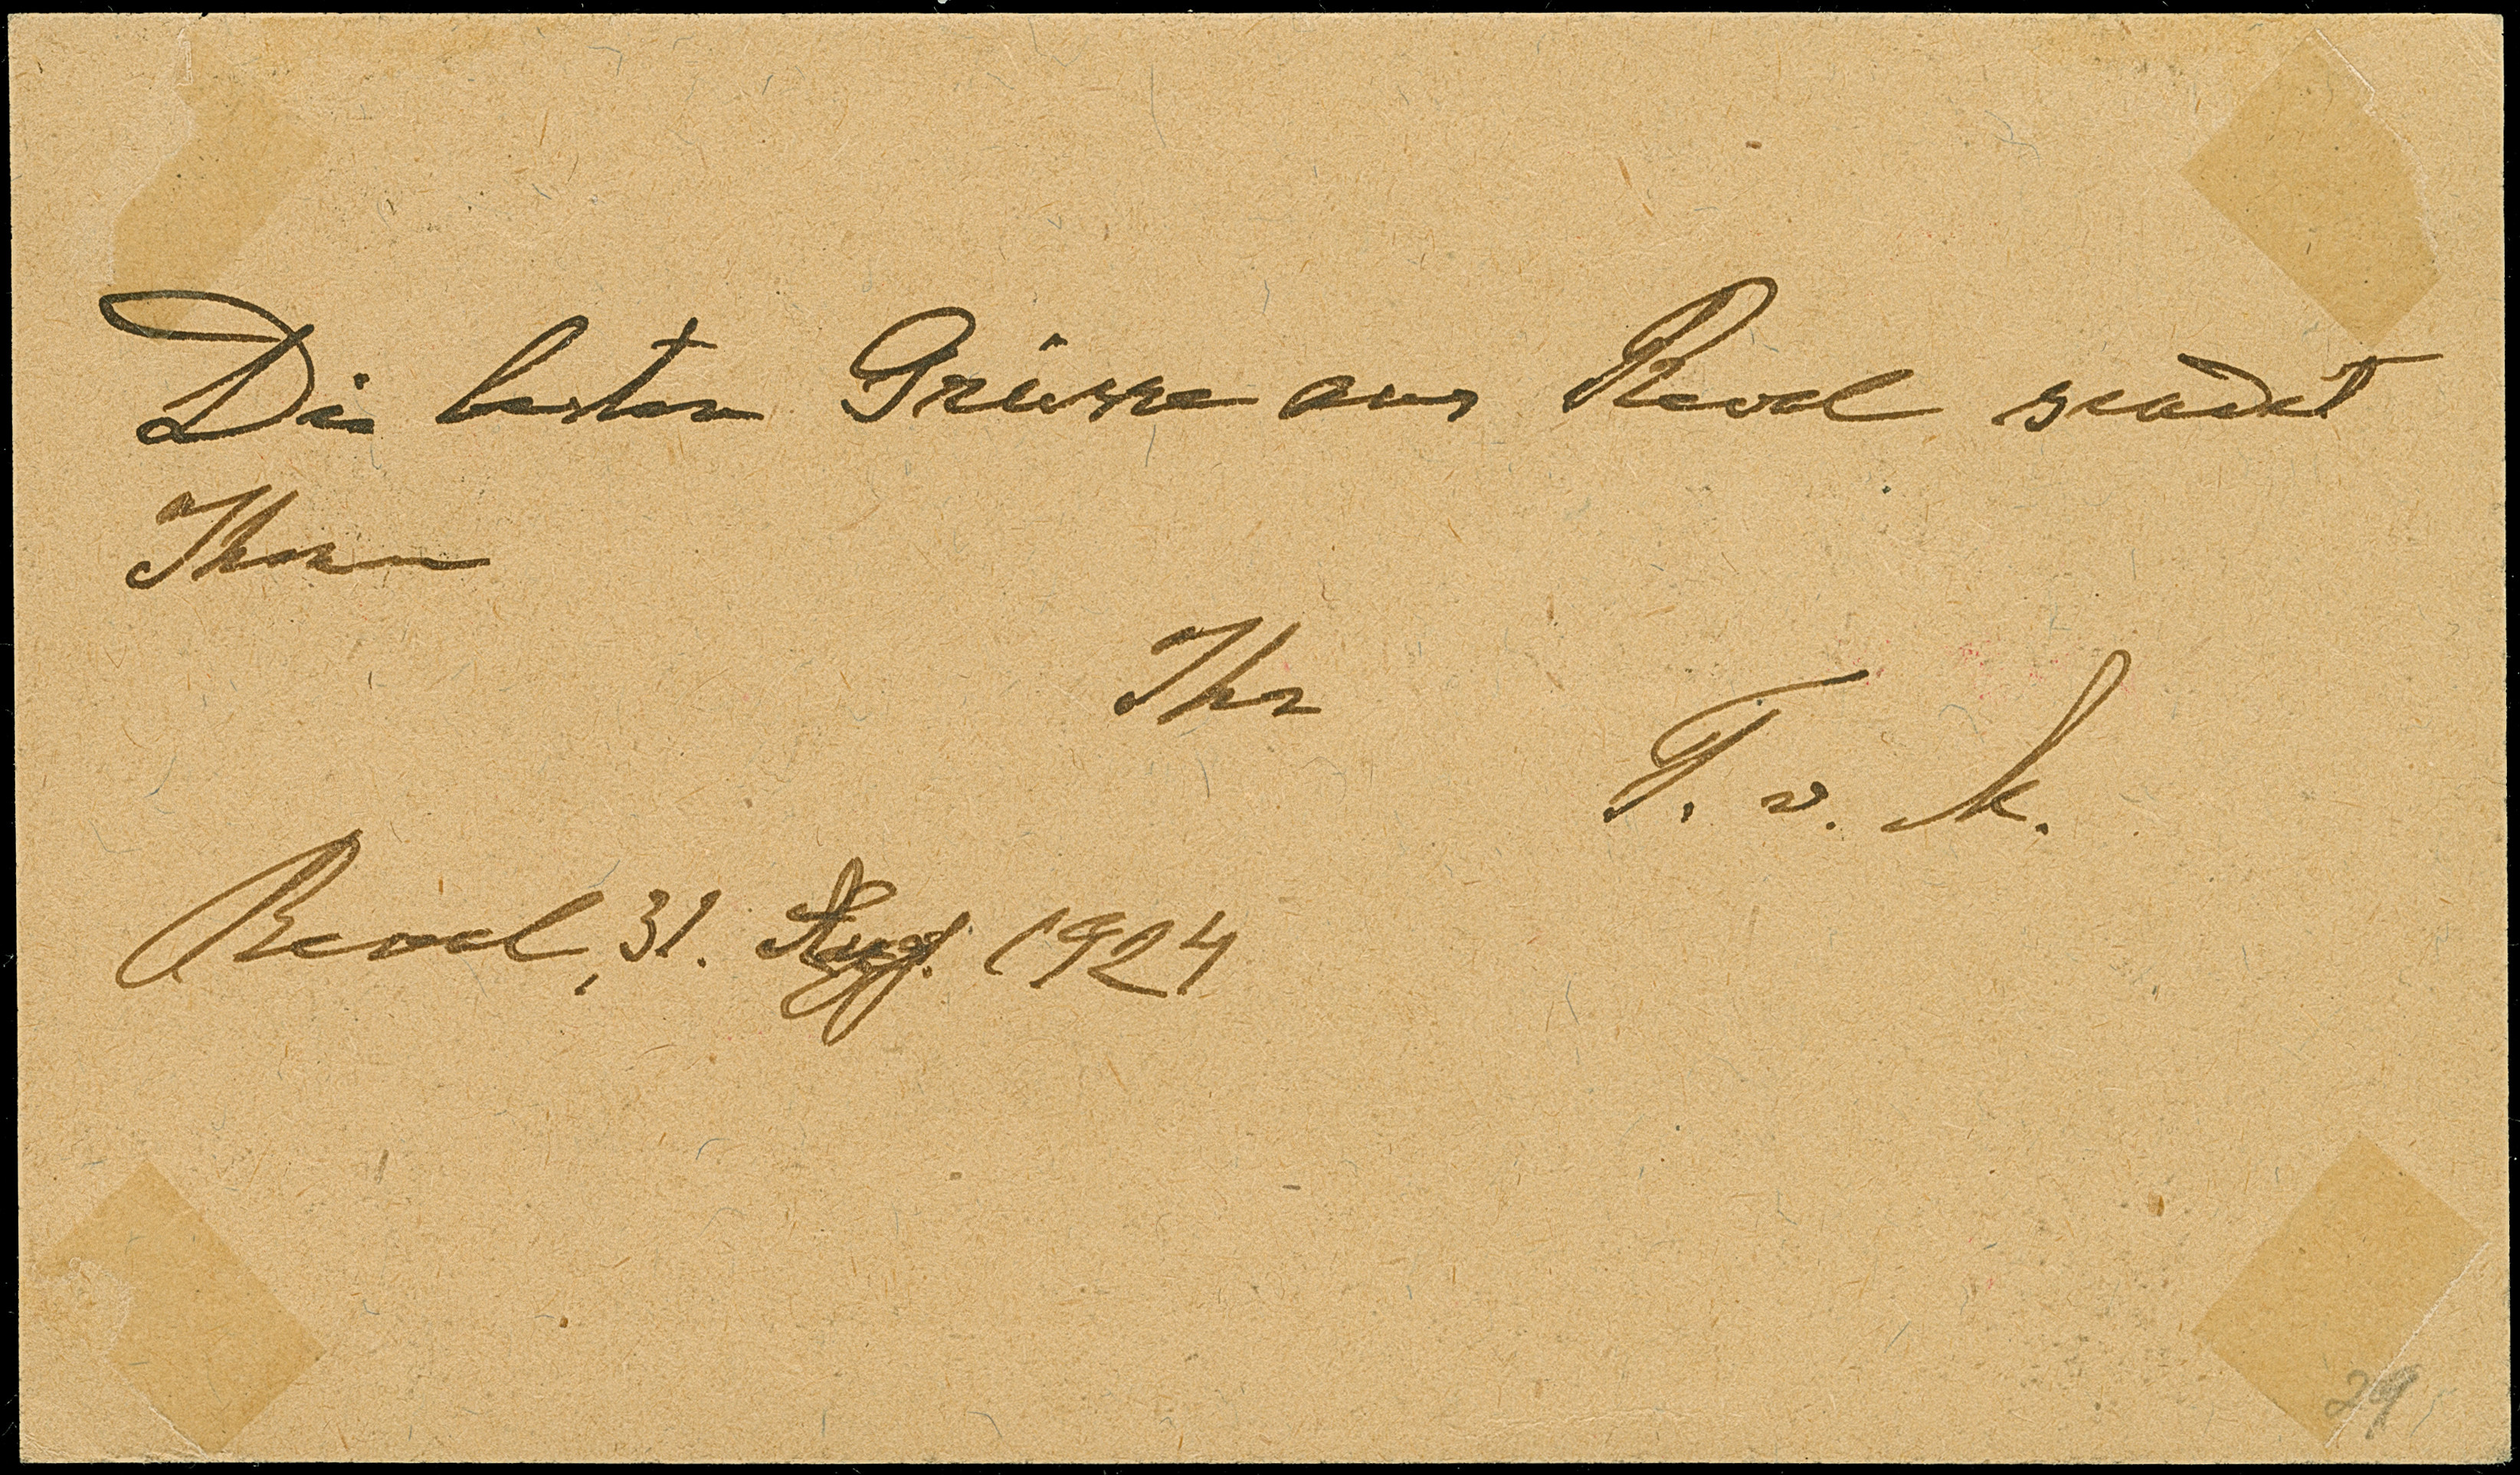 Die besten Grüsse aus Reval sendet
Ihnen
Ihr
T. v. K.
Reval, 31. Aug. 1924
29